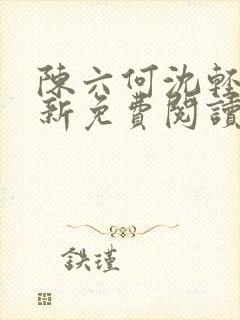 陳六何沈輕
新免費閱讀
鉄瑾